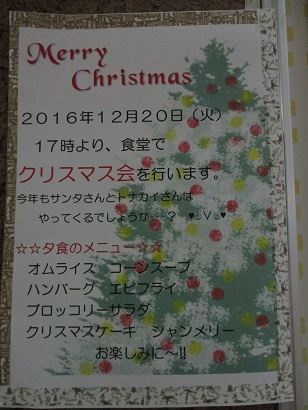 Merry
Christmas
2016年12月20日（火）
17時より、食堂で
クリスマス会を行います。
今年もサンタさんとトナカイさんは
やってくるでしょうか・・・？ ♥♪V♪♥
☆☆夕食のメニュー☆☆
オムライス コーンスープ
ハンバーグ エビフライ
ブロッコリーサラダ
クリスマスケーキ シャンメリー
お楽しみに～!!